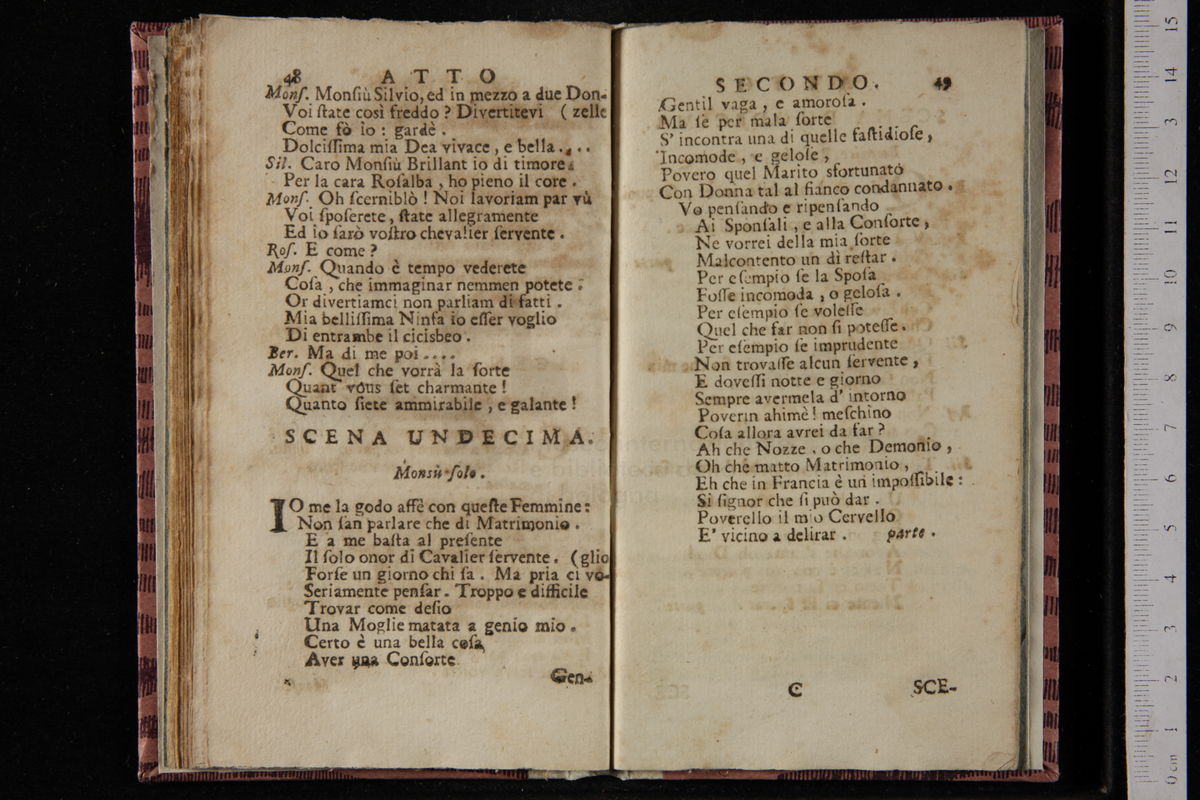 48 ATTO
Monſ. Monſiù Silvio, ed in mezzo a due Don-
Voi ſtate così freddo ? Divertitevi ( zelle
Come fò io : gardè .
Dolciſſima mia Dea vivace , e bella . . . .
Sil. Caro Monſiù Brillant io di timore
Per la cara Roſalba , ho pieno il core .
Monſ. Oh ſcerniblò ! Noi lavoriam par vù
Voi ſpoſerete , ſtate allegramente
Ed io ſarò voſtro chevalier ſervente .
Roſ. E come ?
Monſ. Quando è tempo vederete
Coſa , che immaginar nemmen potete :
Or divertiamci non parliam di fatti .
Mia belliſſima Ninfa io eſſer voglio
Di entrambe il cicisbeo .
Ber. Ma di me poi . . . .
Monſ. Quel che vorrà la ſorte
Quant vous ſet charmante !
Quanto ſiete ammirabile , e galante !
SCENA UNDECIMA.
Monsù ſolo .
IO me la godo affè con queſte Femmine :
Non ſan parlare che di Matrimonio .
E a me baſta al preſente
Il ſolo onor di Cavalier ſervente . ( glio
Forſe un giorno chi ſa . Ma pria ci vo-
Seriamente penſar . Troppo e difficile
Trovar come deſio
Una Moglie matata a genio mio .
Certo è una bella coſa
Aver una Conſorte
Gen-
SECONDO. 49
Gentil vaga , e amoroſa .
Ma ſe per mala ſorte
S' incontra una di quelle faſtidioſe ,
Incomode , e geloſe ,
Povero quel Marito sfortunato
Con Donna tal al fianco condannato .
Vo penſando e ripenſando
Ai Sponſali , e alla Conſorte ,
Ne vorrei della mia ſorte
Malcontento un dì reſtar .
Per eſempio ſe la Spoſa
Foſſe incomoda , o geloſa .
Per eſempio ſe voleſſe
Quel che far non ſi poteſſe .
Per eſempio ſe imprudente
Non trovaſſe alcun ſervente ,
E doveſſi notte e giorno
Sempre avermela d' intorno
Poverin ahimè ! meſchino
Coſa allora avrei da far ?
Ah che Nozze , o che Demonio ,
Oh che matto Matrimonio ,
Eh che in Francia è un impoſſibile :
Si ſignor che ſi può dar .
Poverello il mio Cervello
E' vicino a delirar . parte .
C SCE-